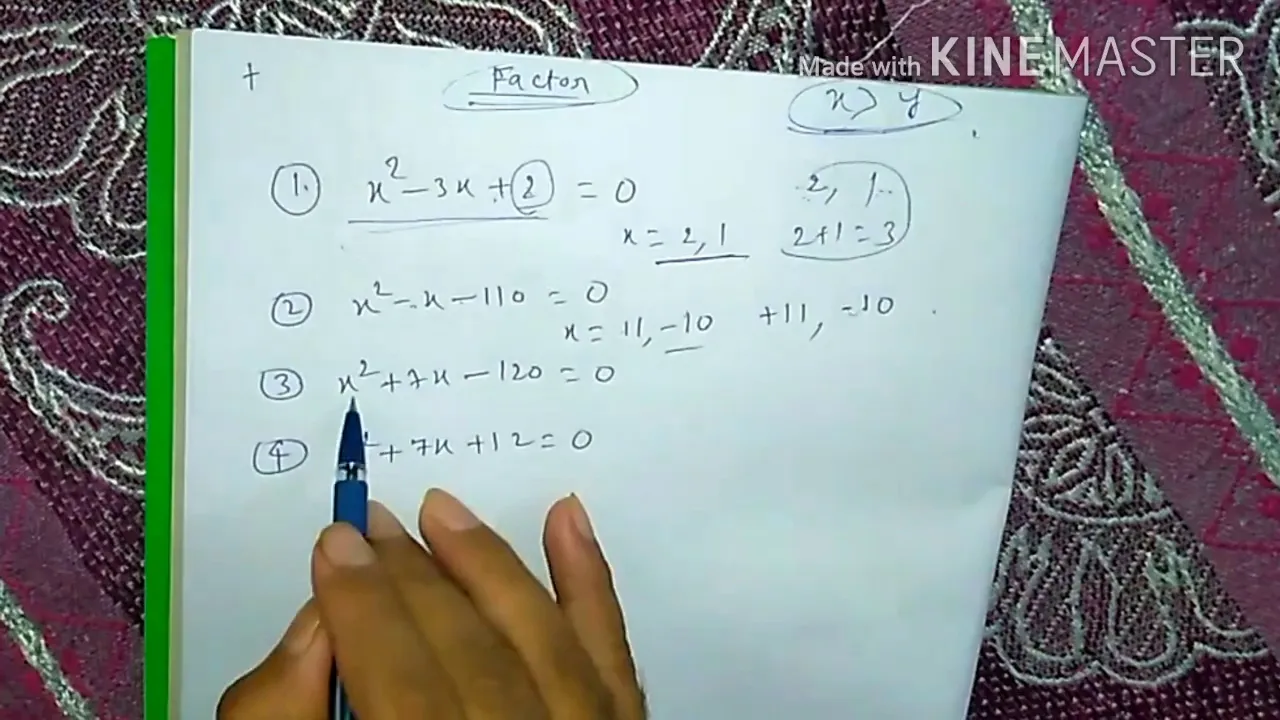 Made with KINEMASTER
+ Factor x > y
① x² - 3x + 2 = 0 2, 1
x = 2, 1 2 + 1 = 3
② x² - x - 110 = 0
x = 11, -10 +11, -10
③ x² + 7x - 120 = 0
④ ² + 7x + 12 = 0